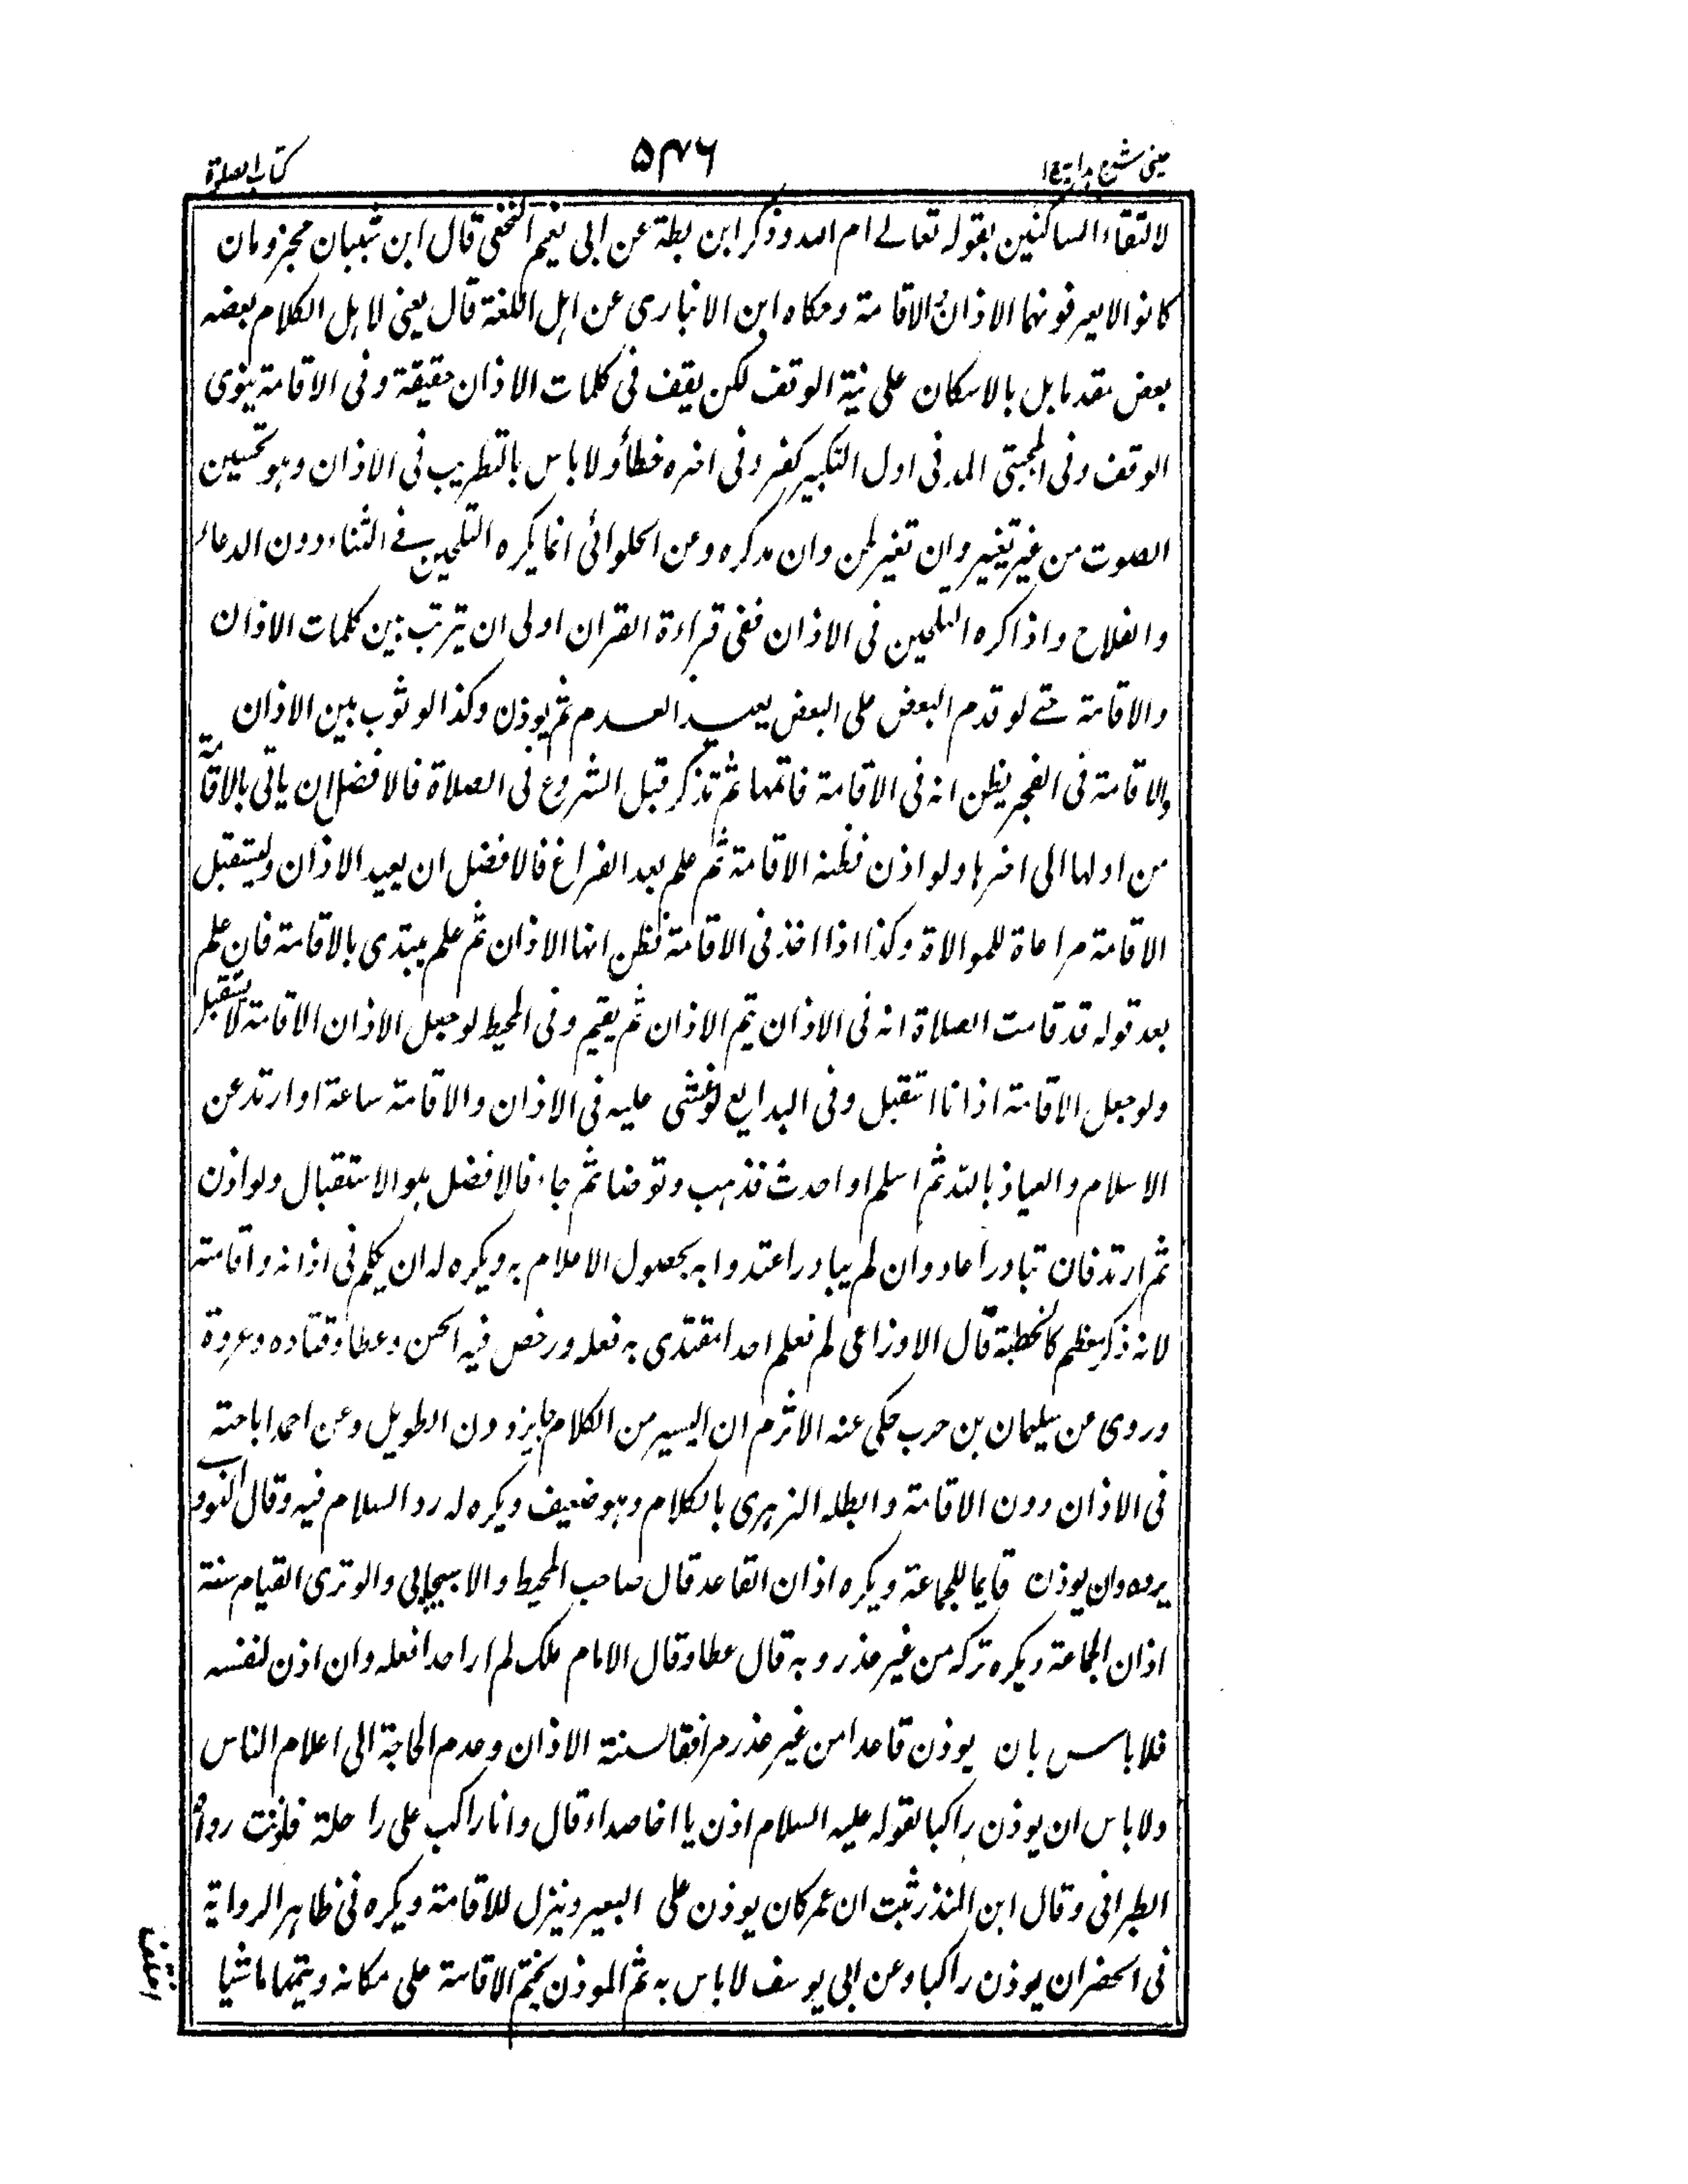 عينى شرح هدايه ج١
٥٤٦
كتاب الصلوة
لالتقاء الساكنين بقوله تعالے ام الله وذكر ابن بطة عن ابى نعيم النخعى قال ابن شيبان مجزومان
كانوا لا يعربونهما الاذان والاقامة وحكاه ابن الانبارى عن اهل اللغة قال يعنى لا بل الكلام بعضه
بعض بل بالاسكان على نية الوقف لكن يقف فى كلمات الاذان حقيقة وفى الاقامة ينوى
الوقف وفى المجتبى المد فى اول التكبير كفر وفى اخره خطأ ولا باس بالتطريب فى الاذان وهو تحسين
الصوت من غير تغيير وان تغير لحن وان مد كره وعن الحلوائى انما يكره التلحين فے الثناء دون الدعاء
والفلاح واذا كره التلحين فى الاذان ففى قراءة القران اولى ان يترتب بين كلمات الاذان
والاقامة حتے لو قدم البعض على البعض يعيد ثم يوذن وكذا لو ثوب بين الاذان
والاقامة فى الفجر يظن انه فى الاقامة فاتمها ثم تذكر قبل الشروع فى الصلاة فالافضل ان ياتى بالاقامة
من اولها الى اخرها ولو اذن فظنه الاقامة ثم علم بعد الفراغ فالافضل ان يعيد الاذان ويستقبل
الاقامة مراعاة للموالاة وكذا اذا اخذ فى الاقامة فظن انها الاذان ثم علم يبتدى بالاقامة فان علم
بعد قوله قد قامت الصلاة انه فى الاذان يتم الاذان ثم يقيم وفى المحيط لو جعل الاذان الاقامة لا يستقبل
ولو جعل الاقامة اذانا استقبل وفى البدايع لو غشى عليه فى الاذان والاقامة ساعة او ارتد عن
الاسلام والعياذ بالله ثم اسلم او احدث فذهب وتوضا ثم جاء فالافضل هو الاستقبال ولو اذن
ثم ارتد فان تبادر اعاد وان لم يبادر اعتدوا به بحصول الاعلام به ويكره له ان يكلم فى اذانه واقامته
لانه ذكر معظم كالخطبة قال الاوزاعى لم نعلم احدا مقتدى به فعله ورخص فيه الحسن وعطا وقتاده وعروة
وروى عن سليمان بن حرب حكى عنه الاثرم ان اليسير من الكلام جايز دون الطويل وعن احمد اباحته
فى الاذان دون الاقامة وابطله الزهرى بالكلام وهو ضعيف ويكره له رد السلام فيه وقال النووى
يرده وان يوذن قايما للجماعة ويكره اذان القاعد قال صاحب المحيط والاسبيجابى والوترى القيام سنة
اذان الجماعة ويكره تركه من غير عذر وبه قال عطا وقال الامام ملك لم ار احدا فعله وان اذن لنفسه
فلا باس بان يوذن قاعدا من غير عذر مرافقا لسنة الاذان وعدم الحاجة الى اعلام الناس
ولا باس ان يوذن راكبا لقوله عليه السلام اذن يا اخا صداء قال وانا راكب على راحلة فاذنت رواه
الطبرانى وقال ابن المنذر ثبت ان عمر كان يوذن على البعير وينزل للاقامة ويكره فى ظاهر الرواية
فى الحضر ان يوذن راكبا وعن ابى يوسف لا باس به ثم الموذن يختم الاقامة على مكانه ويتمها ماشيا